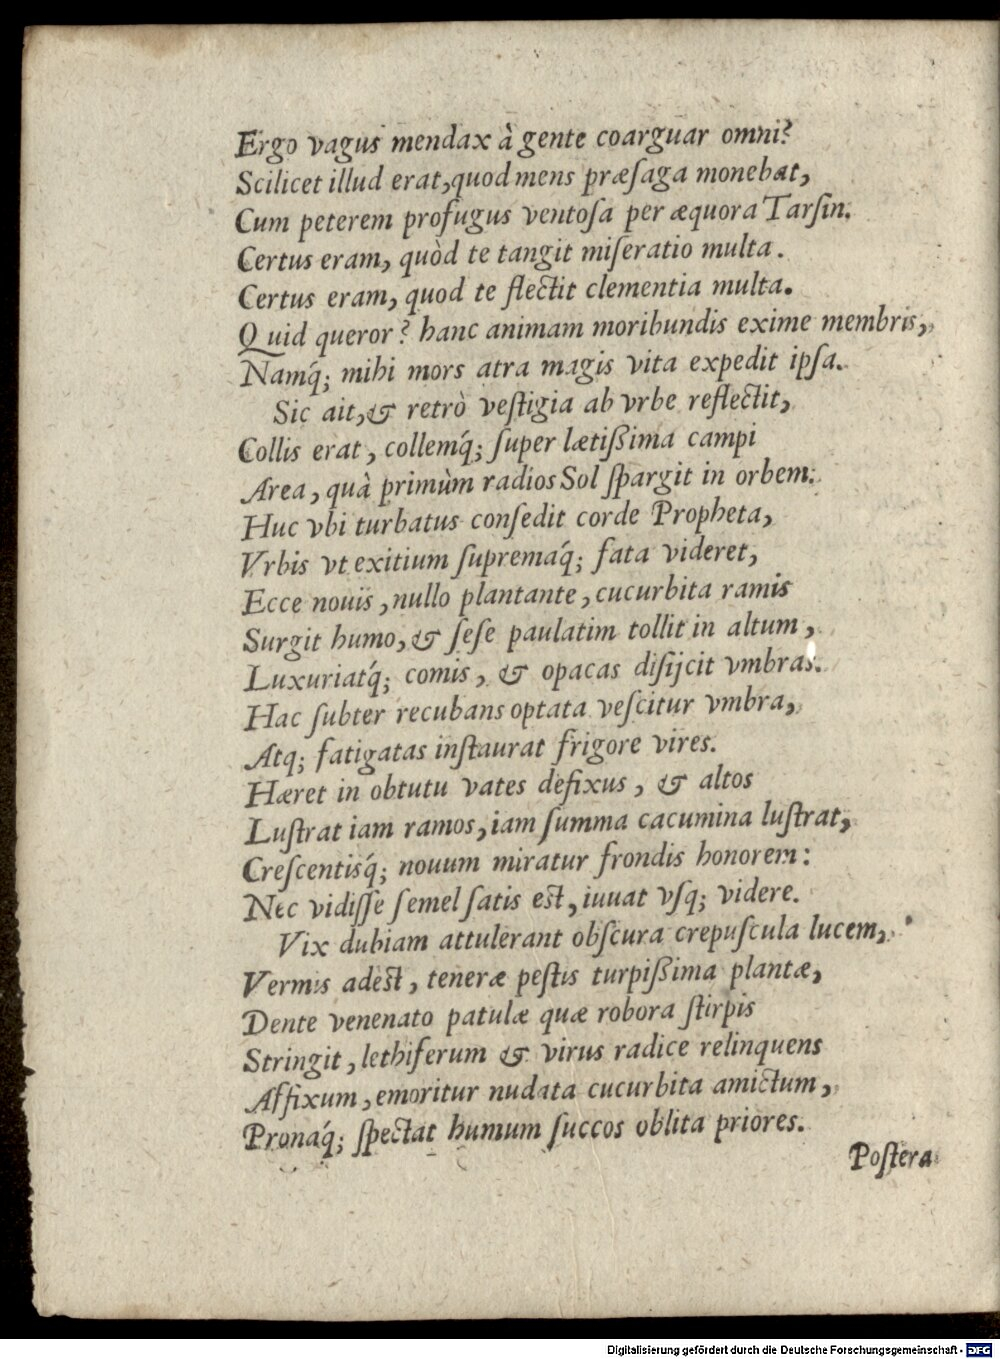 Ergo vagus mendax à gente coarguar omni?
Scilicet illud erat, quod mens præſaga monebat,
Cum peterem profugus ventoſa per æquora Tarſin.
Certus eram, quòd te tangit miſeratio multa.
Certus eram, quod te flectit clementia multa.
Quid queror? hanc animam moribundis exime membris,
Namq́; mihi mors atra magis vita expedit ipſa.
Sic ait, & retrò veſtigia ab vrbe reflectit,
Collis erat, collemq́; ſuper lætiſſima campi
Area, quà primùm radios Sol ſpargit in orbem:
Huc vbi turbatus conſedit corde Propheta,
Vrbis vt exitium ſupremaq́; fata videret,
Ecce nouis, nullo plantante, cucurbita ramis
Surgit humo, & ſeſe paulatim tollit in altum,
Luxuriatq́; comis, & opacas diſijcit vmbras.
Hac ſubter recubans optata veſcitur vmbra,
Atq; fatigatas inſtaurat frigore vires.
Hæret in obtutu vates defixus, & altos
Luſtrat iam ramos, iam ſumma cacumina luſtrat,
Creſcentisq́; nouum miratur frondis honorem:
Nec vidiſſe ſemel ſatis eſt, iuuat vſq; videre.
Vix dubiam attulerant obſcura crepuſcula lucem,
Vermis adeſt, teneræ peſtis turpiſſima plantæ,
Dente venenato patulæ quæ robora ſtirpis
Stringit, lethiferum & virus radice relinquens
Affixum, emoritur nudata cucurbita amictum,
Pronaq́; ſpectat humum ſuccos oblita priores.
Poſtera
Digitalisierung gefördert durch die Deutsche Forschungsgemeinschaft - DFG